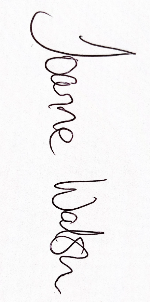 Joanne Walsh